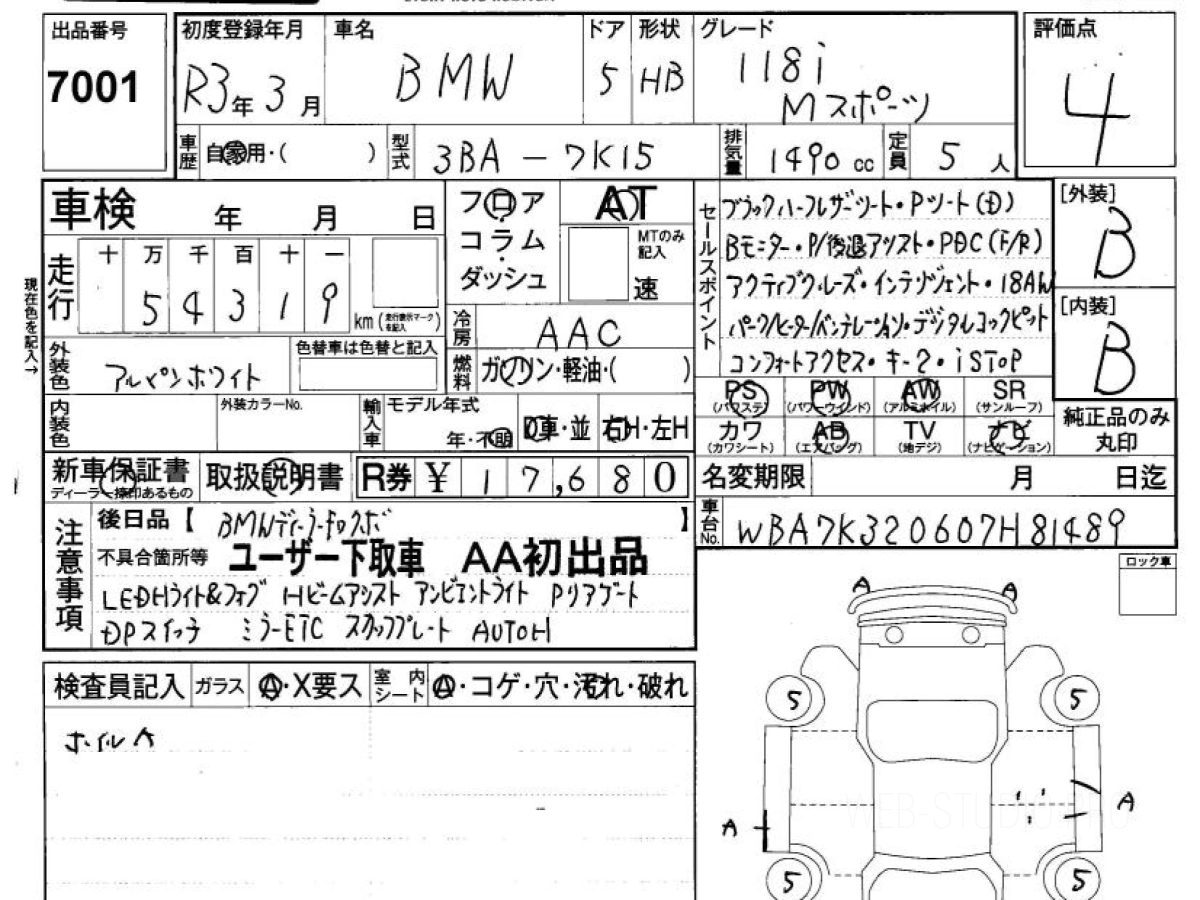 出品番号
7001
初度登録年月
R3年 3月
車名
BMW
ドア
5
形状
HB
グレード
118i
Mスポーツ
評価点
4
車歴
自家用・( )
型式
3BA-7K15
排気量
1490 cc
定員
5人
車検 年 月 日
フロア
コラム
ダッシュ
AT
MTのみ
記入
速
セールスポイント
ブラックハーフレザーシート・Pシート(D)
Bモニター・P/後退アシスト・PDC(F/R)
アクティブクルーズ・インテリジェント・18AW
パーク/ヒーター/ベンチレーション・デジタルコックピット
コンフォートアクセス・キー2・iSTOP
[外装]
B
[内装]
B
現在色を記入→
走行
十 万 千 百 十 一
5 4 3 1 9
km(走行表示マークを記入)
冷房
AAC
外装色
アルペンホワイト
色替車は色替と記入
燃料
ガソリン・軽油・( )
内装色
外装カラーNo.
輸入車
モデル年式
年・不明
D車・並
右H・左H
PS
(パワステ)
PW
(パワーウインド)
AW
(アルミホイル)
SR
(サンルーフ)
カワ
(カワシート)
AB
(エアバッグ)
TV
(地デジ)
ナビ
(ナビゲーション)
純正品のみ
丸印
新車保証書
ディーラー捺印あるもの
取扱説明書
R券 ¥ 17,680
名変期限 月 日迄
車台No.
WBA7K320607H81489
注意事項
後日品【 】
不具合箇所等
ユーザー下取車 AA初出品
LEDHライト&フォグ Hビームアシスト アンビエントライト Pリアゲート
DPスイッチ ミラーETC スカッフプレート AUTOH
ロック車
検査員記入
ガラス
A・X要ス
室内シート
A・コゲ・穴・汚れ・破れ
ホイルA
A A
5 5
A A
5 5
WEB-STUDIO.PRO